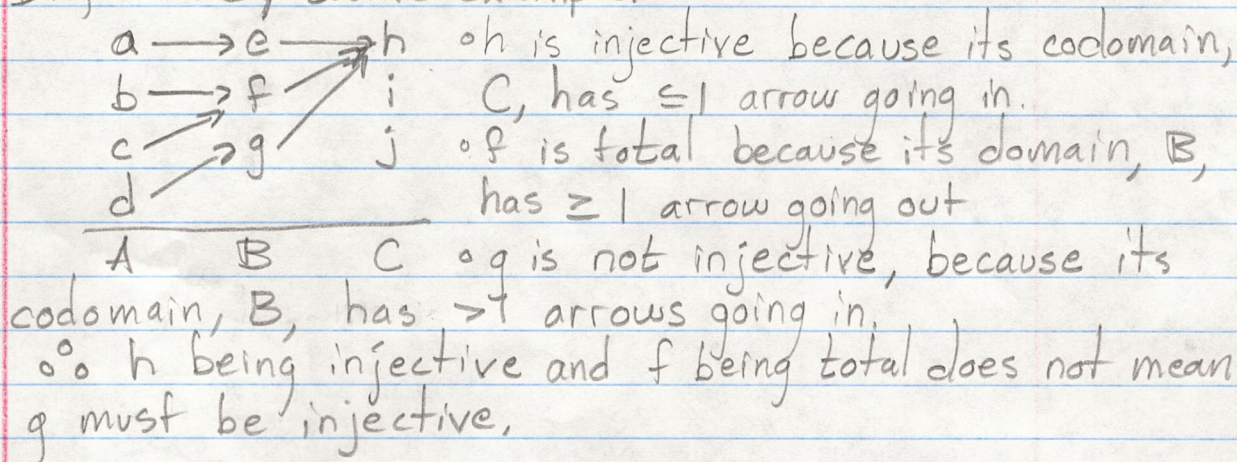 a → e → h ∘h is injective because its codomain,
b → f i C, has ≤1 arrow going in.
c g j ∘f is total because its domain, B,
d has ≥ 1 arrow going out
A B C ∘g is not injective, because its
codomain, B, has >1 arrows going in.
∴ h being injective and f being total does not mean
g must be injective.